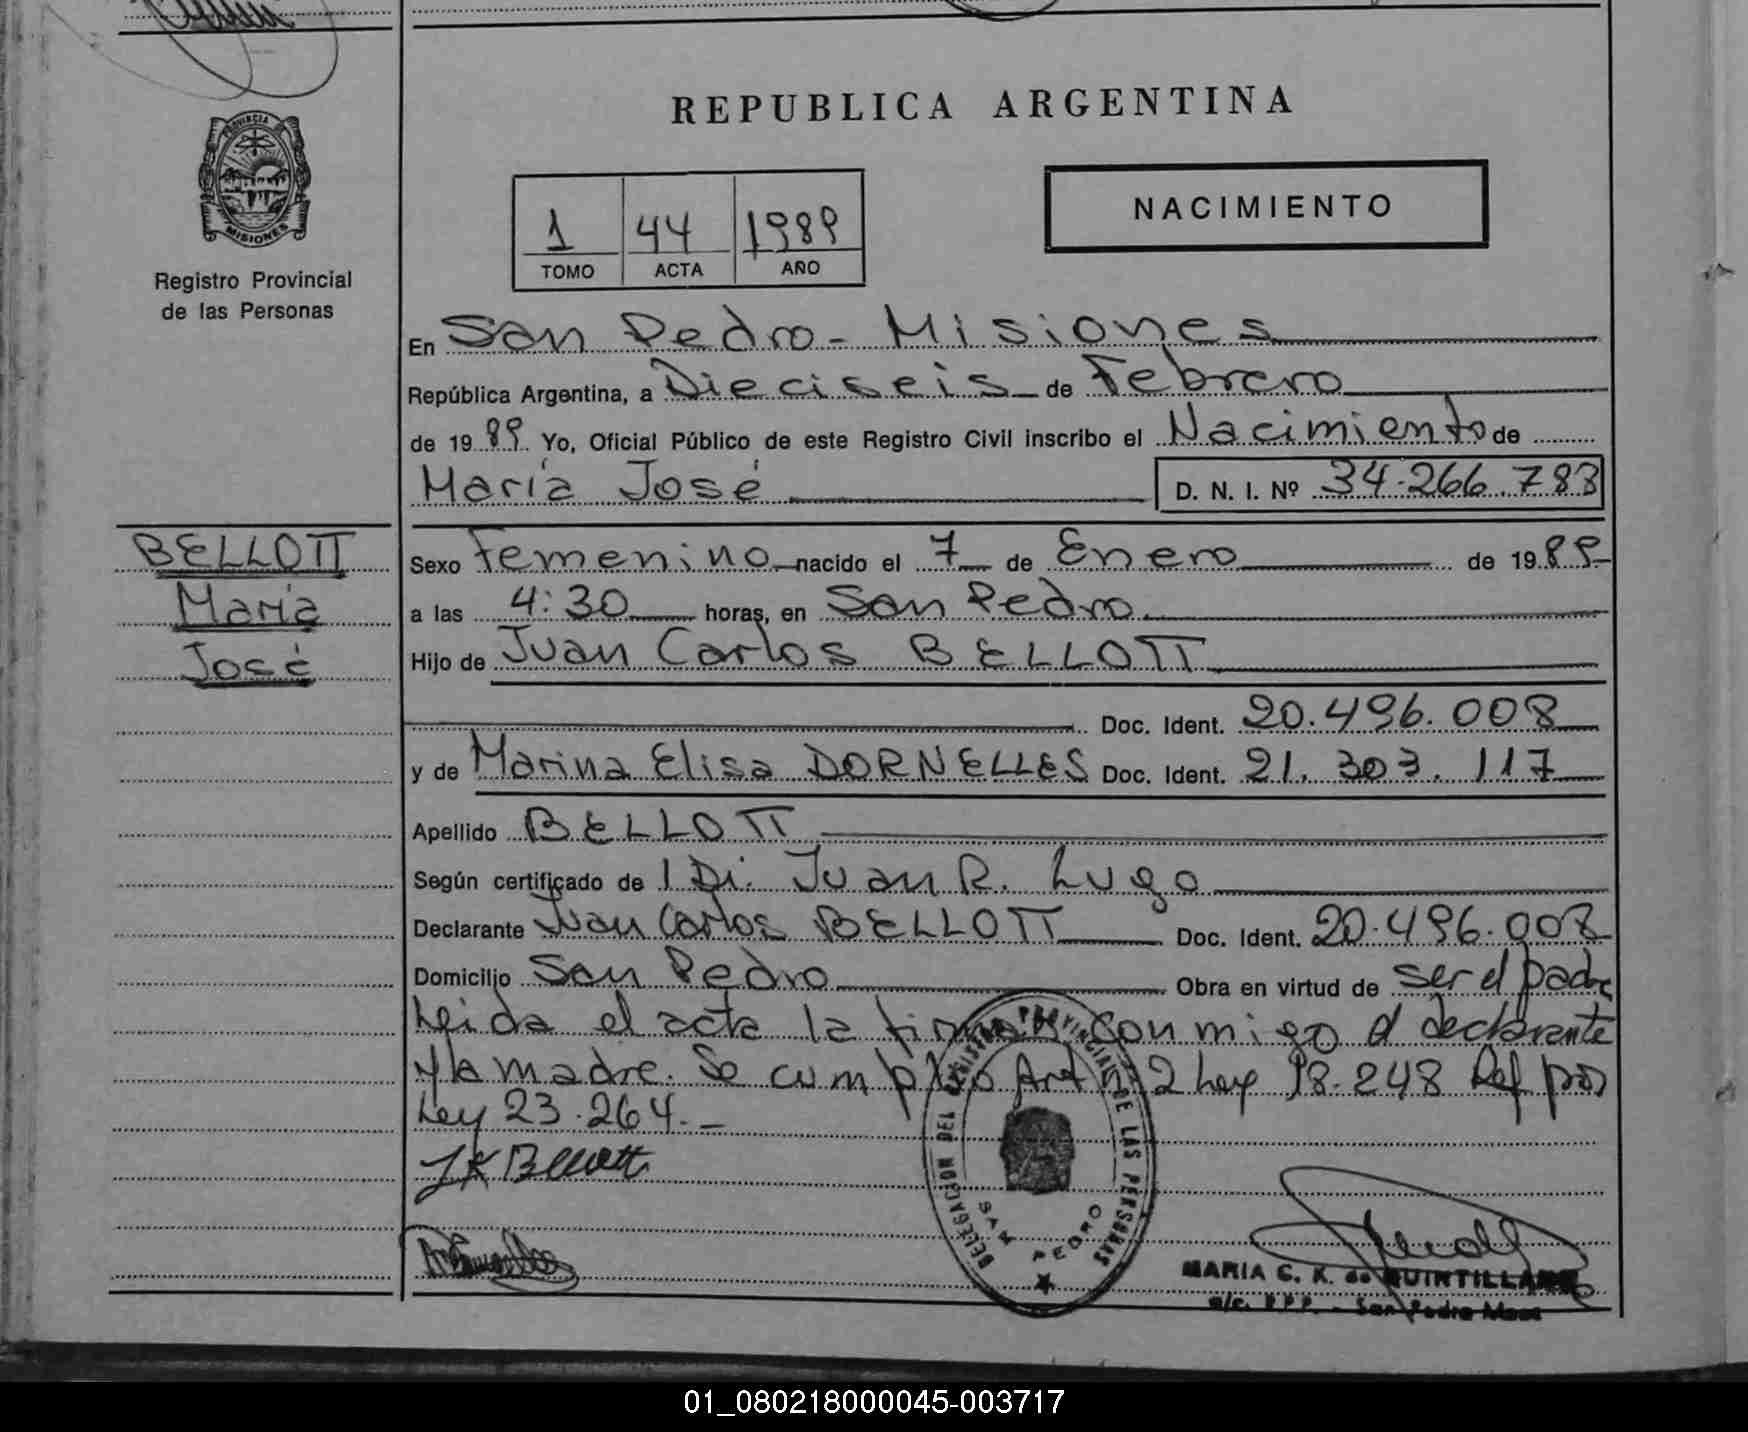 REPUBLICA ARGENTINA
PROVINCIA DE
MISIONES
Registro Provincial
de las Personas
1 44 1989
TOMO ACTA AÑO
NACIMIENTO
En San Pedro - Misiones
República Argentina, a Dieciseis de Febrero
de 1989 Yo, Oficial Público de este Registro Civil inscribo el Nacimiento de
María José D. N. I. Nº 34.266.783
BELLOTT
María
José
Sexo Femenino nacido el 7 de Enero de 1989
a las 4:30 horas, en San Pedro
Hijo de Juan Carlos BELLOTT
Doc. Ident. 20.496.008
y de Marina Elisa DORNELLES Doc. Ident. 21.303.117
Apellido BELLOTT
Según certificado de Di. Juan R. Lugo
Declarante Juan Carlos BELLOTT Doc. Ident. 20.496.008
Domicilio San Pedro Obra en virtud de ser el padre
Leida el acta la firman conmigo el declarante
y la madre. Se cumplió Art 2 Ley 18.248 Ref por
Ley 23.264.-
DELEGACION DEL REGISTRO PROVINCIAL DE LAS PERSONAS
SAN PEDRO
MARIA C. K. de QUINTILLANE
a/c. R.P.P. - San Pedro Mnes
01_080218000045-003717